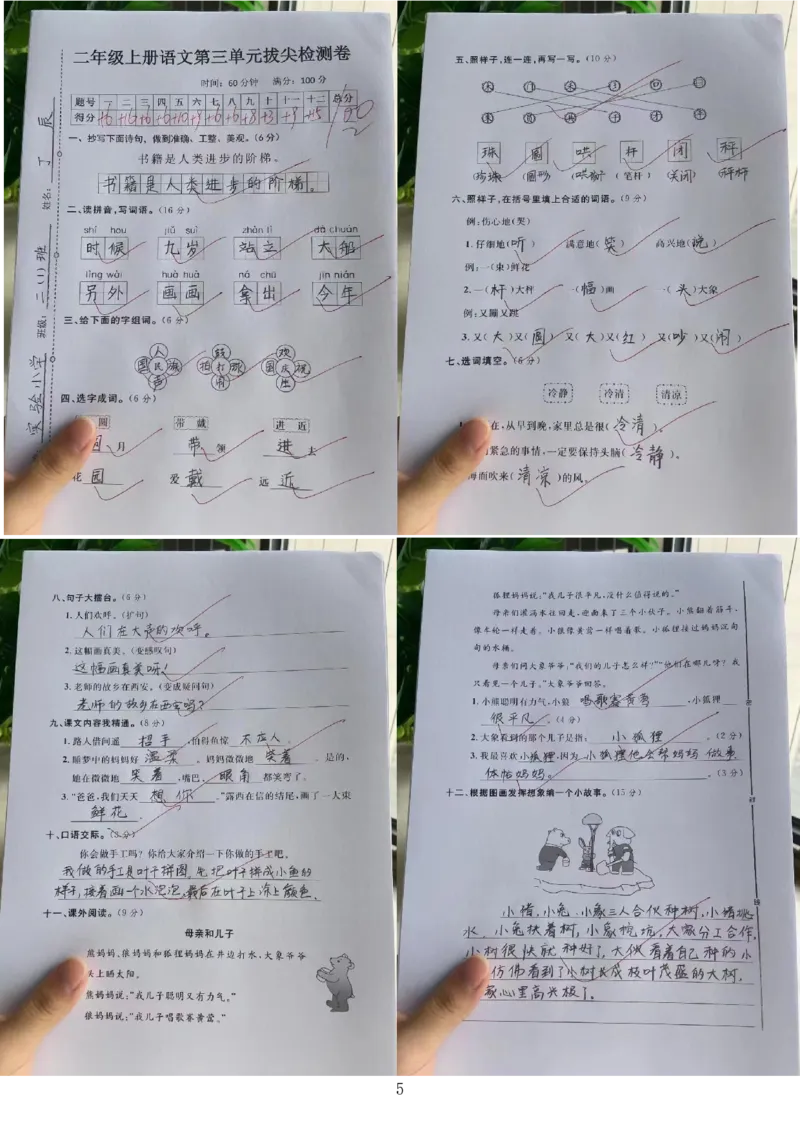 二年级上册语文第三单元拔尖检测卷
时间：60分钟 满分：100分
题号 一 二 三 四 五 六 七 八 九 十 十一 十二 总分
得分 +6 +16 +6 +6 +10 +9 +6 +6 +8 +3 +9 +15 100
实验小学 班级：二(1)班 姓名：丁辰
一、抄写下面诗句，做到准确、工整、美观。(6分)
书籍是人类进步的阶梯。
书籍是人类进步的阶梯。
二、读拼音，写词语。(16分)
shí hou jiǔ suì zhàn lì dà chuán
时候 九岁 站立 大船
lìng wài huà huà ná chū jīn nián
另外 画画 拿出 今年
三、给下面的字组词。(6分)
四、选字成词。(6分)
圆 带 戴 进 近
月 带 领 进 去
花 园 爱 戴 远 近
五、照样子，连一连，再写一写。(10分)
珠 圆 哄 杆 闭 秤
(珍珠) (圆形) (笔杆) (关闭)
六、照样子，在括号里填上合适的词语。(9分)
例：伤心地(哭)
1.仔细地(听) 满意地(笑) 高兴地(说)
例：一(束)鲜花
2.一(杆)大秤 一(幅)画 一(头)大象
例：又蹦又跳
3.又(大)又(圆) 又(大)又(红) 又(吵)又(闹)
七、选词填空。(6分)
冷静 冷清 清凉
在，从早到晚，家里总是很(冷清)。
紧急的事情，一定要保持头脑(冷静)。
海面吹来(清凉)的风。
八、句子大擂台。(6分)
1.人们欢呼。(扩句)
人们在大声的欢呼。
2.这幅画真美。(变感叹句)
这幅画真美呀！
3.老师的故乡在西安。(变成疑问句)
老师的故乡在西安吗？
九、课文内容我精通。(8分)
1.路人借问遥 招手 ，怕得鱼惊 不应人 。
2.睡梦中的妈妈好 温柔 。妈妈微微地 笑着 。是的，
她在微微地 笑着 ，嘴巴、 眼角 都笑弯了。
3.“爸爸，我们天天 想你 。”露西在信的结尾，画了一大束
鲜花 。
十、口语交际。(3分)
你会做手工吗？你给大家介绍一下你做的手工吧。
我做的手工是叶子拼图，先把叶子拼成小鱼的
样子，接着画一个水泡泡，最后在叶子上涂上颜色。
十一、课外阅读。(9分)
母亲和儿子
熊妈妈、狼妈妈和狐狸妈妈在井边打水，大象爷爷
头上晒太阳。
熊妈妈说：“我儿子聪明又有力气。”
狼妈妈说：“我儿子唱歌赛黄莺。”
狐狸妈妈说：“我儿子很平凡，没什么值得说的。”
母亲们灌满水往回走，迎面来了三个小伙子。小熊翻着筋斗，
像车轮一样走着。小狼像黄莺一样唱着歌。小狐狸接过妈妈沉甸
甸的水桶。
母亲们问大象爷爷：“我们的儿子怎么样？”“他们在哪儿呀？我
只看见一个儿子。”大象爷爷回答。
1.小熊聪明有力气，小狼 唱歌赛黄莺 ，小狐狸
很平凡 。(4分)
2.大象看到的那个儿子是指： 小狐狸 。(2分)
3.我最喜欢小狐狸，因为 小狐狸他会帮妈妈做事，
体怗妈妈。 。(3分)
十二、根据图画发挥想象编一个小故事。(15分)
小猪、小兔、小象三人合伙种树，小猪挑
水，小兔扶着树，小象挖坑，大家分工合作，
小树很快就种好了，大伙看着自己种的小
仿佛看到了小树长成枝叶茂盛的大树，
家心里高兴极了。
5